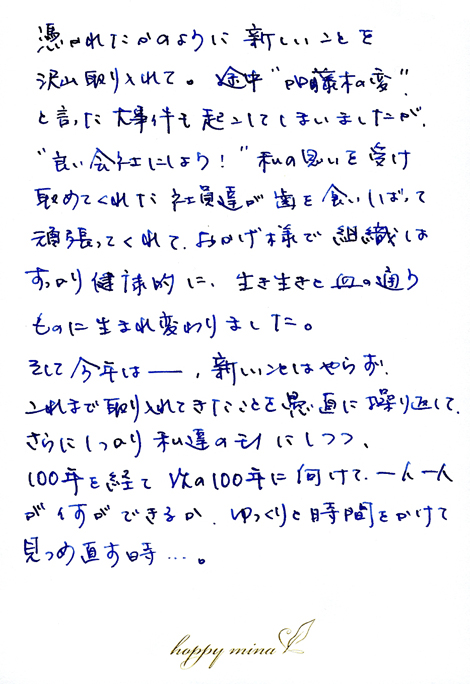 憑かれたかのように新しいことを
沢山取り入れて。途中“ の変”
と言った大事件も起こしてしまいましたが、
“良い会社にしよう！”私の思いを受け
取めてくれた社員達が歯を食いしばって
頑張ってくれて、おかげ様で組織は
すっかり健康的に、生き生きと血の通う
ものに生まれ変わりました。
そして今年は――、新しいことはやらず、
これまで取り入れてきたことを愚直に繰り返して、
さらにしっかり私達のモノにしつつ、
100年を経て次の100年に向けて、一人一人
が何ができるか、ゆっくりと時間をかけて
見つめ直す時…。
happy mina